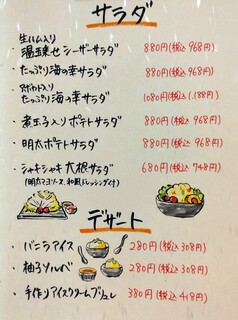 サラダ
生ハム入り
・湯葉レタス シーザーサラダ 880円(税込 968円)
・たっぷり海の幸サラダ 880円(税込 968円)
アボカド入り
たっぷり海の幸サラダ 1080円(税込 1.188円)
・煮玉子入り ポテトサラダ 880円(税込 968円)
・明太ポテトサラダ 880円(税込 968円)
・シャキシャキ 大根サラダ 680円(税込 748円)
(明太マヨソース、和風ドレッシング付き)
デザート
・バニラアイス 280円(税込 308円)
・柚子ソルベ 280円(税込 308円)
・手作りアイスクリームブリュレ 380円(税込 418円)